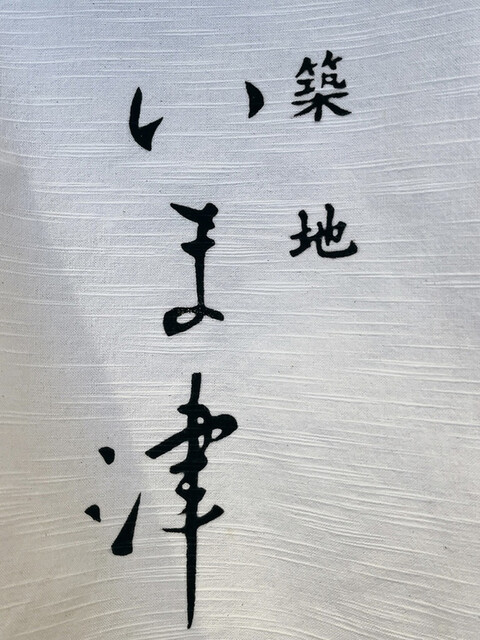 築地
いま津